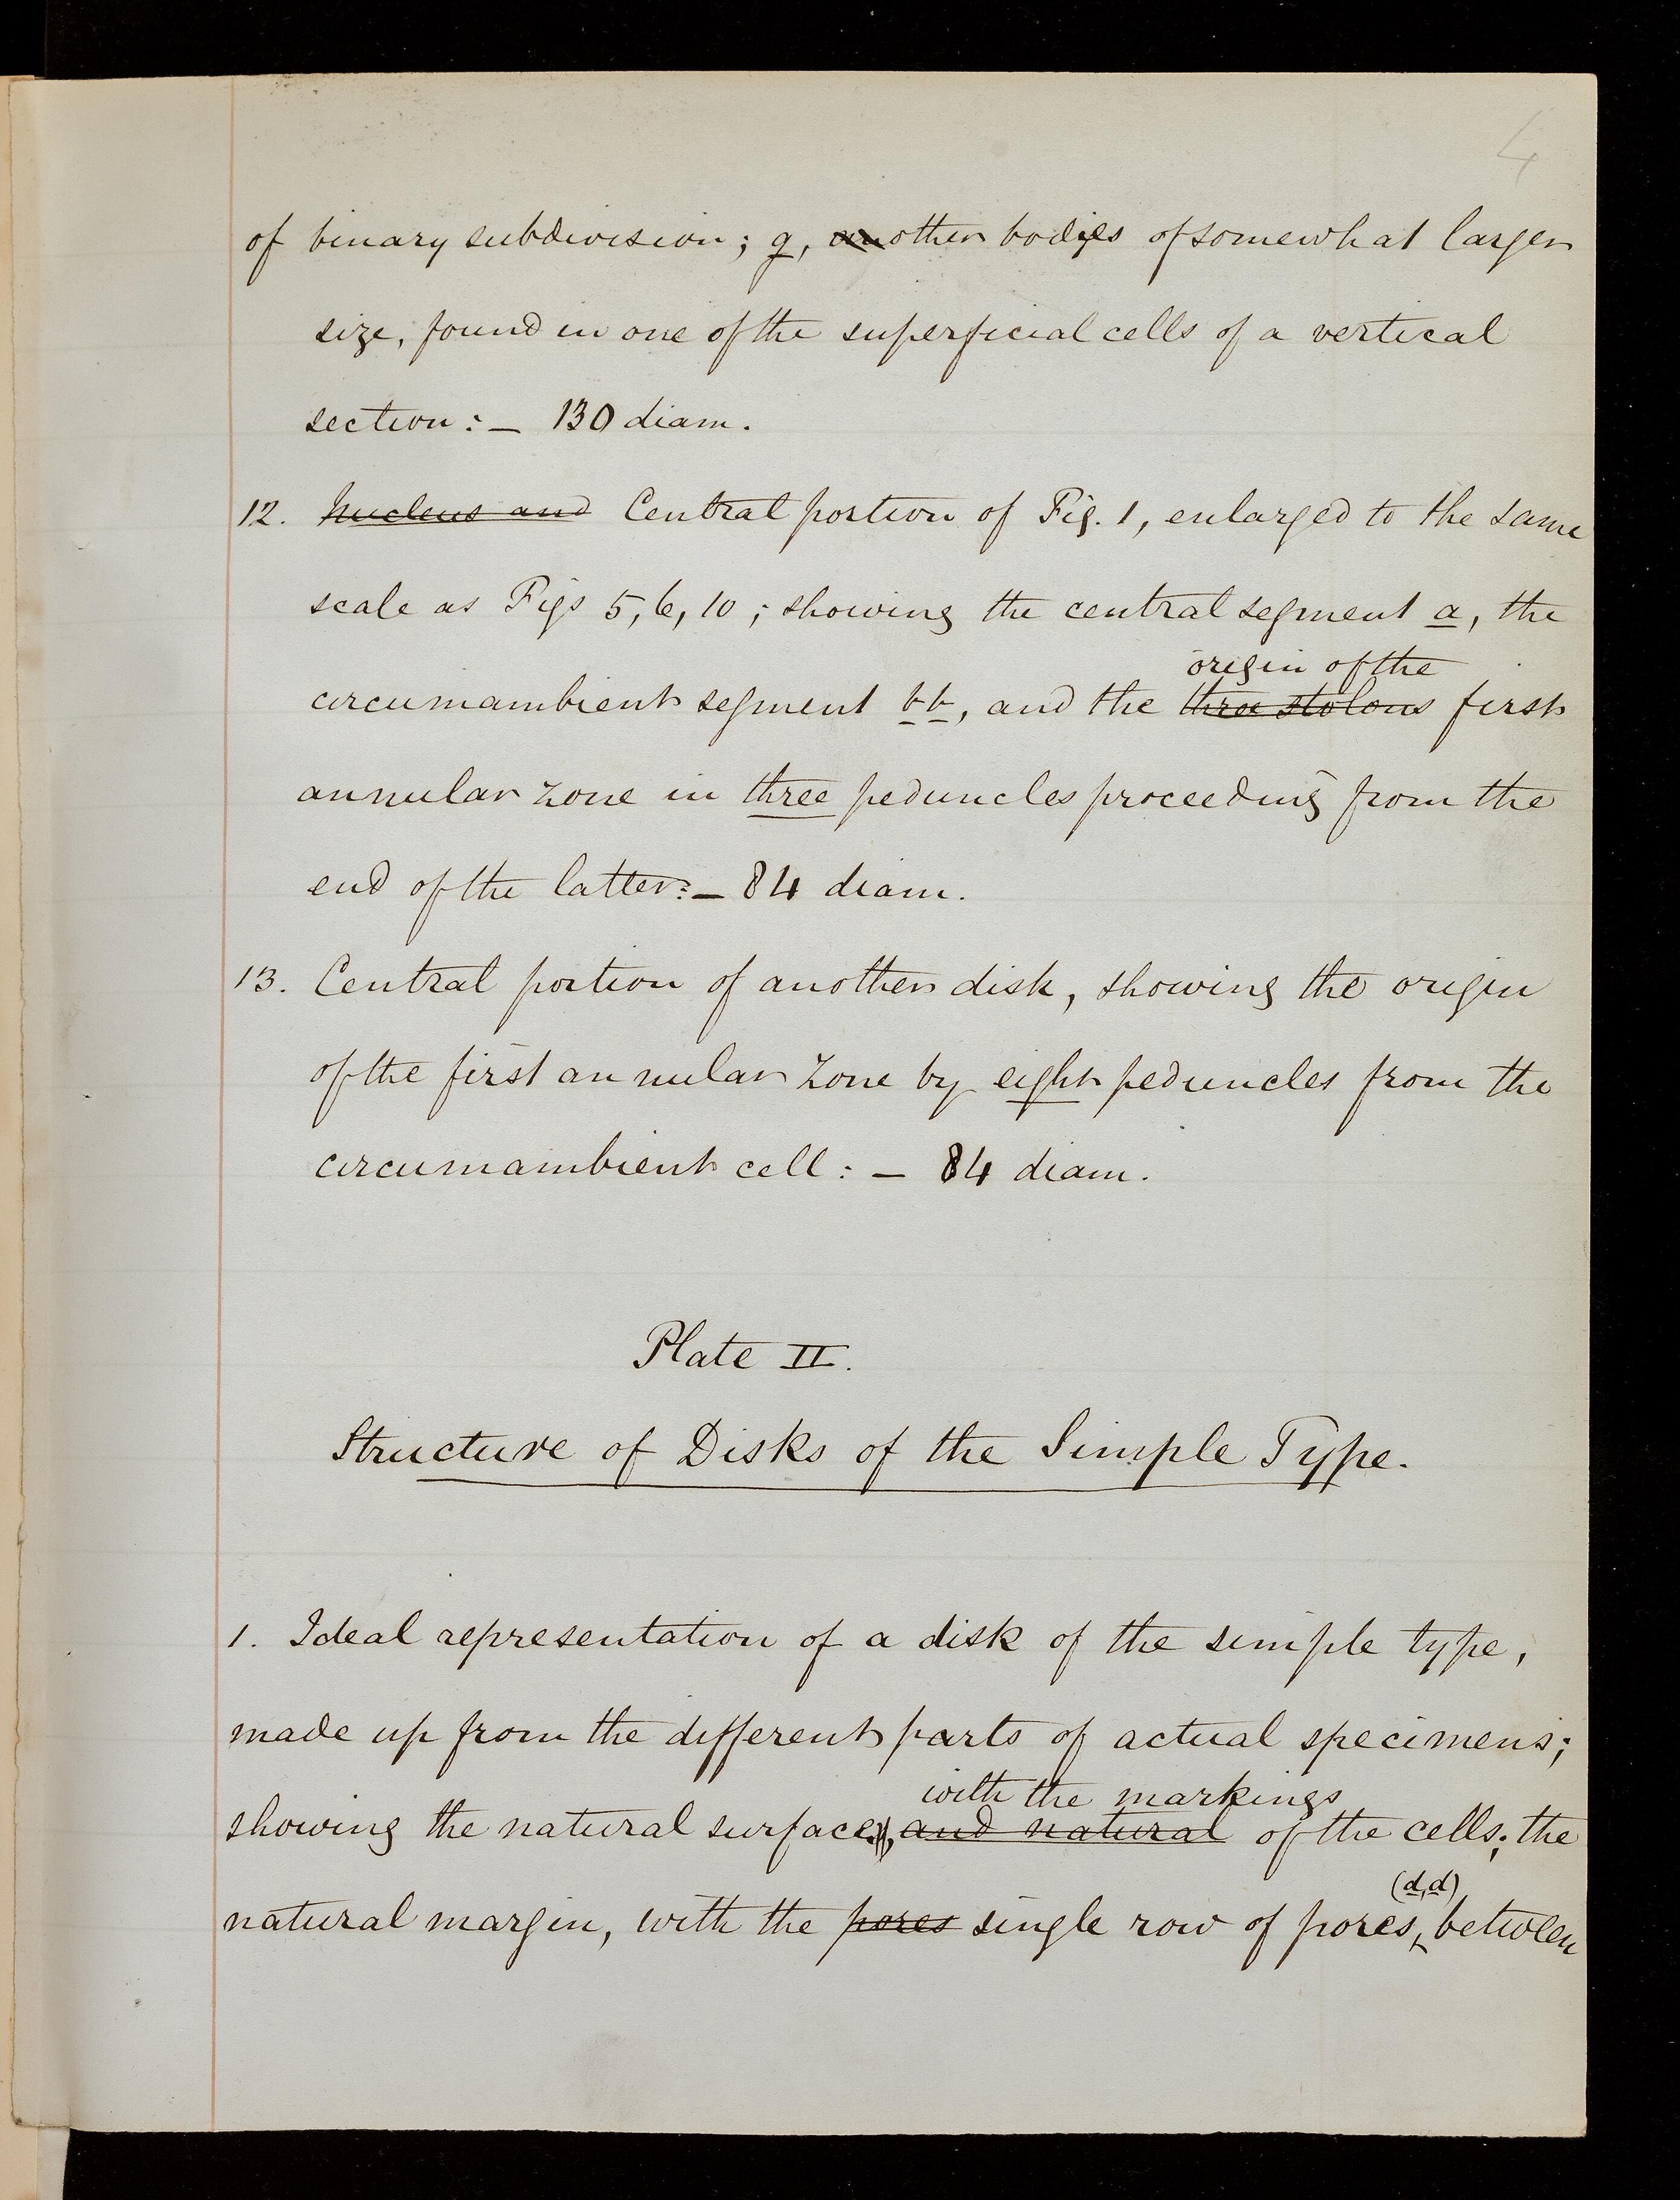 4
of binary subdivision; g, another bodies of somewhat larger
size, found in one of the superficial cells of a vertical
section: — 130 diam.
12. Nucleus and Central portion of Fig. 1, enlarged to the same
scale as Figs 5, 6, 10; showing the central segment a, the
origin of the
circumambient segment b b, and the three stolons first
annular zone in three peduncles proceeding from the
end of the latter: — 84 diam.
13. Central portion of another disk, showing the origin
of the first annular zone by eight peduncles from the
circumambient cell: — 84 diam.
Plate II.
Structure of Disks of the Simple Type.
1. Ideal representation of a disk of the simple type,
made up from the different parts of actual specimens;
with the markings
showing the natural surface, and natural of the cells; the
(d,d)
natural margin, with the pores single row of pores, between